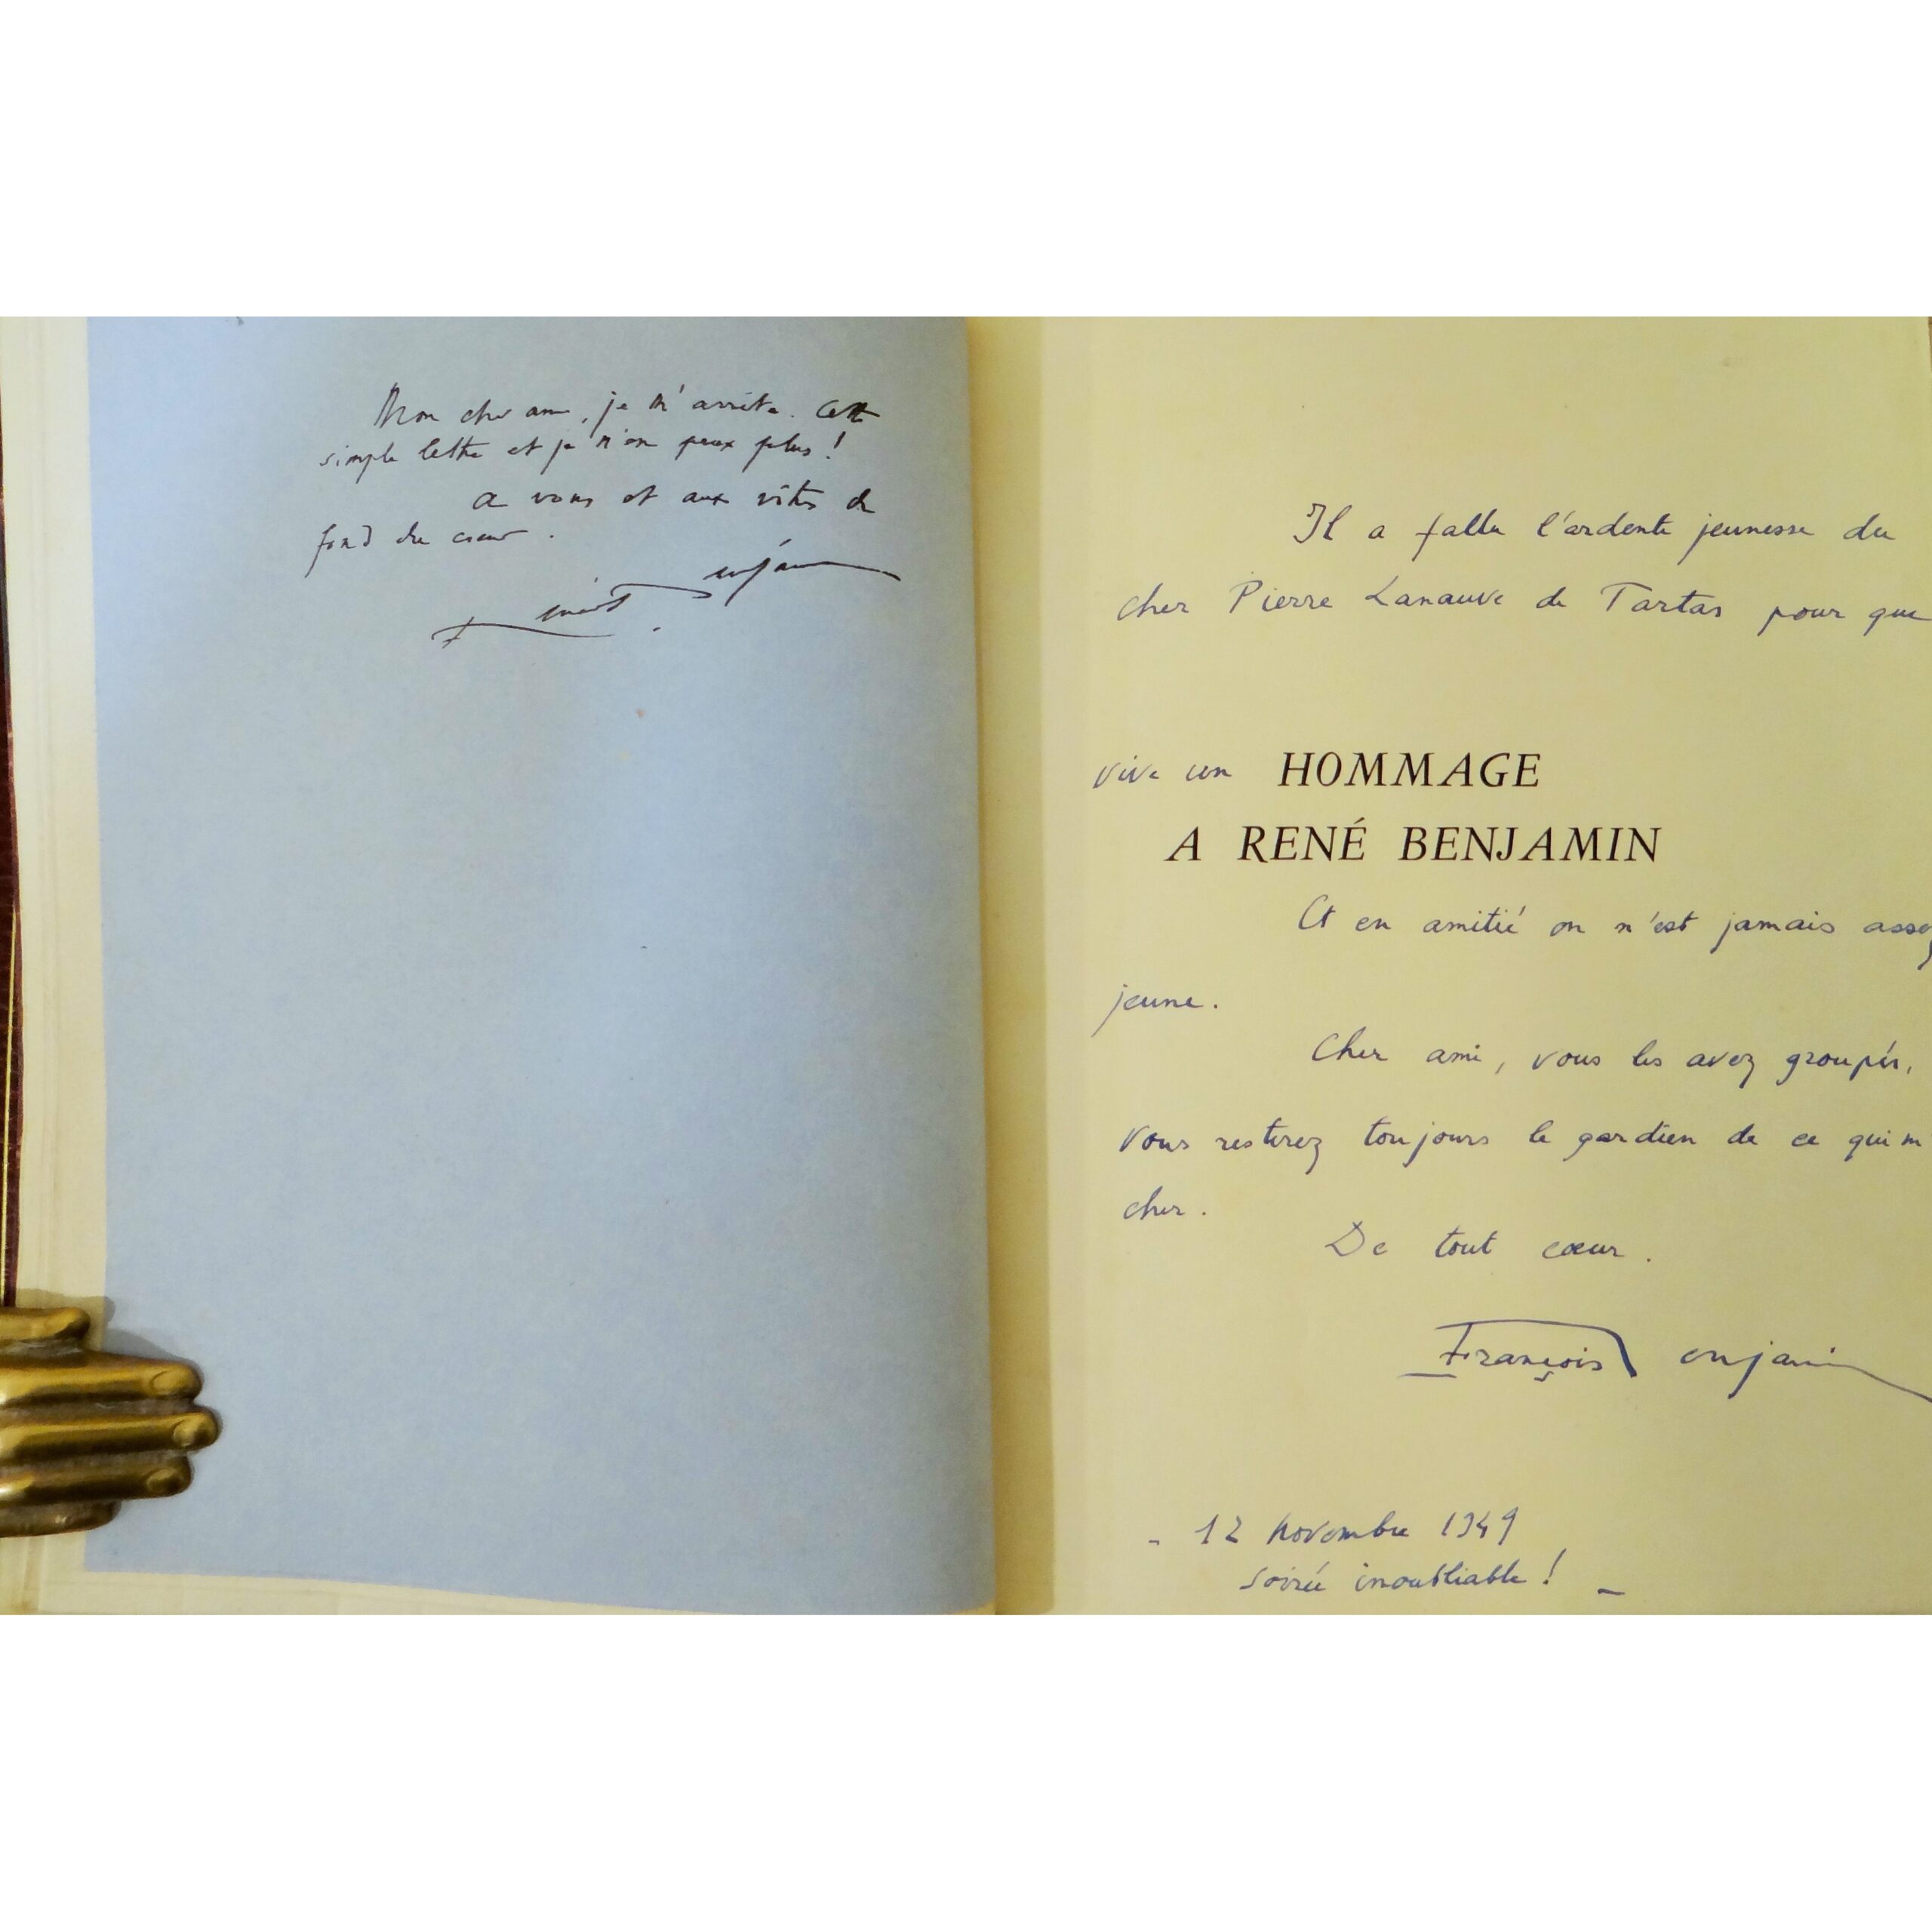 Mon cher ami, je m'arrête. Cette
simple lettre et je n'en peux plus !
à vous et aux vôtres du
fond du cœur.
Il a fallu l'ardente jeunesse du
cher Pierre Lanauve de Tartas pour que
vive un HOMMAGE
A RENÉ BENJAMIN
Et en amitié on n'est jamais assez
jeune.
Cher ami, vous les avez groupés,
vous resterez toujours le gardien de ce qui m
cher.
De tout cœur.
François Benjamin
- 12 novembre 1949
soirée inoubliable ! -